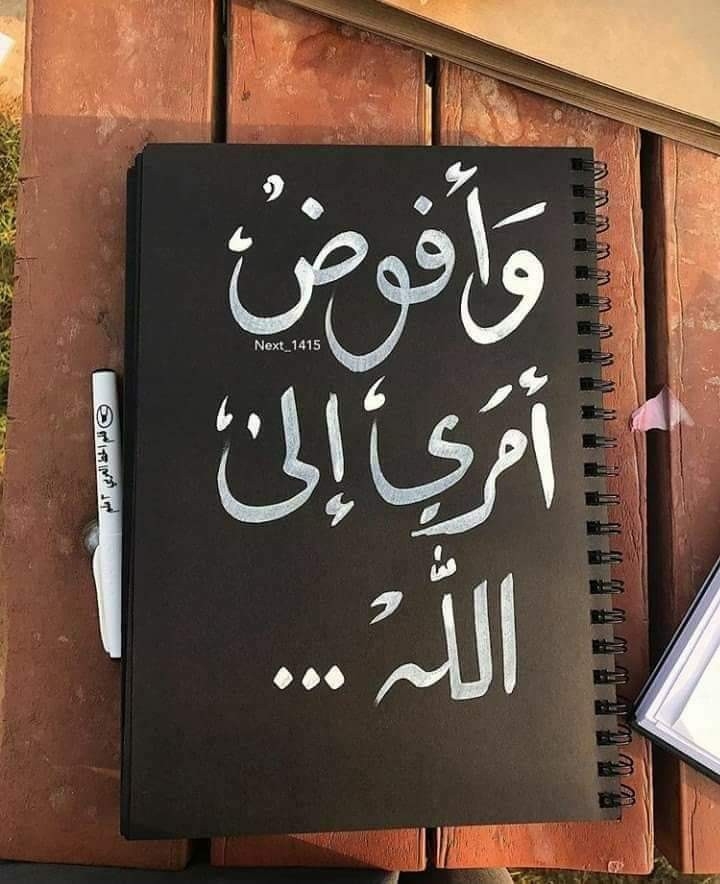 وَأفوضُ
Next_1415
أمَري إلىٰ
اللّٰهْ ...